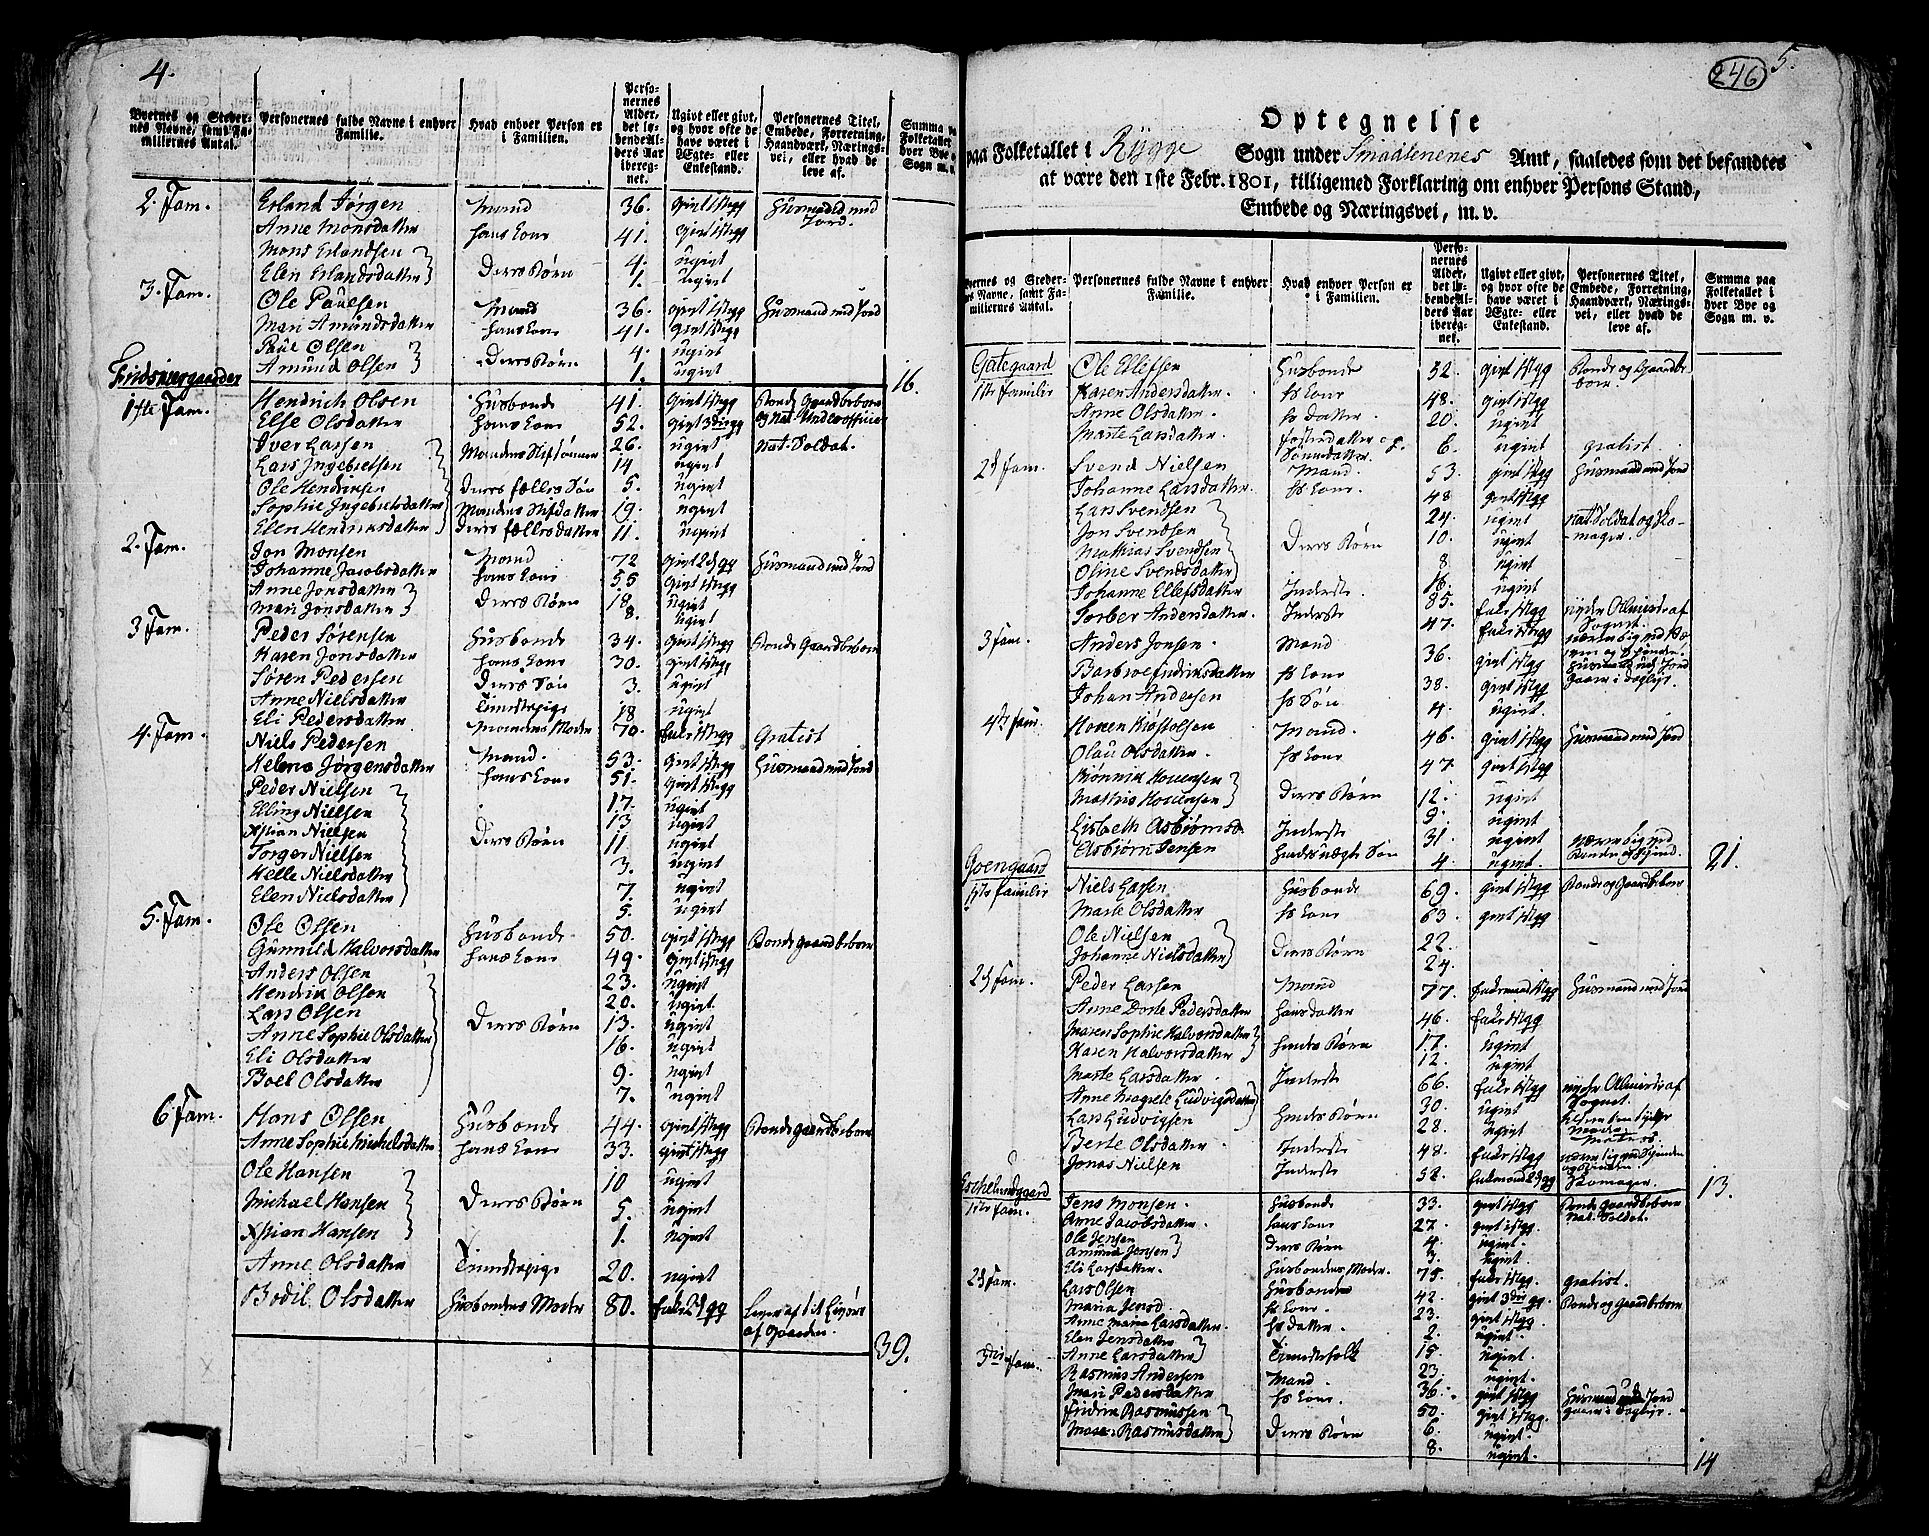 4.
Byernes og Steder-
nes Navne, samt Fa-
miliernes Antal.
Personernes fulde Navne i enhver
Familie.
Hvad enhver Person er
i Familien.
Perso-
nernes
Alder,
det lø-
bende Al-
ders Aar
ibereg-
net.
Ugivt eller givt,
og hvor ofte de
have været i
Ægte- eller
Enkestand.
Personernes Titel,
Embede, Forretning,
Haandværk, Nærings-
vei, eller hvad de
leve af.
Summa pa
Folketallet
hver Bye o
Sogn m. v.
2. Fam. Erland Jørgen Mand 36. givt 1ste gg Huusmand med Jord.
Anne Monsdatter hans Kone 41. givt 1ste gg
Mons Erlandsen 4. ugivt
Elen Erlandsdatter Deres Børn 1. ugivt
3. Fam. Ole Paulsen Mand 36. givt 1ste gg Huusmand med Jord
Mari Amundsdatter hans Kone 41. givt 1ste gg
Paul Olsen 4. ugivt
Amund Olsen Deres Børn 1. ugivt 16.
1ste Fam. Hendrich Olsen Husbonde 41. givt 1ste gg Bonde Gaardbeboer og nat. Underofficer
Else Olsdatter hans Kone 52. givt 3die gg
Iver Larsen 26. ugivt nat. Soldat.
Lars Ingebretsen Mandens Stifsønner 14 ugivt
Ole Hendriksen deres fælles Søn 5. ugivt
Sophie Ingebretsdatter Mandens Stifdatter 19. ugivt
Elen Hendriksdatter deres fælles datter 11. ugivt
2. Fam. Jon Monsen Mand 72 givt 2d gg Huusmand med Jord
Johanne Jacobsdatter hans Kone 55 givt 1ste gg
Anne Jonsdatter 18. ugivt
Mari Jonsdatter Deres Børn 8. ugivt
3 Fam. Peder Sørensen Husbonde 34. givt 1ste gg Bonde Gaardbeboer
Karen Jonsdatter hans Kone 30. givt 1ste gg
Søren Pedersen Deres Søn 3. ugivt
Anne Nielsdatter Tienestepige 18 ugivt
Eli Pedersdatter Mandens Moder 70. Enke 1ste gg Gratist
4. Fam. Niels Pedersen Mand 53. givt 1ste gg Huusmand med Jord
Helena Jørgensdatter hans Kone 51. givt 1ste gg
Peder Nielsen 17. ugivt
Elling Nielsen 13 ugivt
Xstian Nielsen Deres Børn 11 ugivt
Torger Nielsen 3. ugivt
Helle Nielsdatter 7. ugivt
Elen Nielsdatter 5. ugivt
5. Fam. Ole Olsen Husbonde 50. givt 1ste gg Bonde gaardbeboer
Gunnild Halvorsdatter hans Kone 49. givt 1ste gg
Anders Olsen 23. ugivt
Hendrik Olsen 20. ugivt
Lars Olsen Deres Børn 13. ugivt
Anne Sophie Olsdatter 16. ugivt
Eli Olsdatter 9. ugivt
Boel Olsdatter 7. ugivt
6 Fam. Hans Olsen Husbonde 44. givt 1ste gg Bonde gaardbeboer
Anne Sophie Michelsdatter hans Kone 33. givt 1ste gg
Ole Hansen 10 ugivt
Michael Hansen Deres Børn 5. ugivt
Xstian Hansen 1. ugivt
Anne Olsdatter Tienestepige 20. ugivt
Bodil Olsdatter Husbondens Moder 80. Enke 2d gg Lever af sit
af Gaarden. 39.
246 5.
Optegnelse
paa Folketallet i Rygge Sogn under Smaalenenes Amt, saaledes som det befandtes
at være den 1ste Febr. 1801, tilligemed Forklaring om enhver Persons Stand,
Embede og Næringsvei, m. v.
yernes og Steder-
es Navne, samt Fa-
miliernes Antal.
Personernes fulde Navne i enhver
Familie.
Hvad enhver Person er
i Familien.
Perso-
nernes
Alder,
det lø-
bende Al-
ders Aar
ibereg-
net.
Ugivt eller givt,
og hvor ofte de
have været i
Ægte- eller
Enkestand.
Personernes Titel,
Embede, Forretning,
Haandværk, Nærings-
vei, eller hvad de
leve af.
Summa paa
Folketallet i
hver Bye og
Sogn m. v.
Gategaard Ole Ellefsen Husbonde 52. givt 1ste gg Bonde og Gaardbeboer.
1ste Familie Karen Andersdatter. hs Kone 48. givt 1ste gg
Anne Olsdatter. hs datter. 20. ugivt
Marte Larsdatter. Sønnedatter 6. ugivt gratist
2d Fam. Svend Nielsen Mand. 53. givt 1ste gg Huusmand med Jord
Johanne Larsdatter. hs Kone. 48 givt 1ste gg
Lars Svendsen 24. ugivt nat. Soldat og Skomager.
Jon Svendsen 10. ugivt
Mathias Svendsen Deres Børn 8 ugivt
Oline Svendsdatter 16. ugivt
Johanne Ellefsdatter Inderste. 85. Enke 1ste gg nyder Almisse af Sognet.
Torber Andersdatter. Inderste 47. Enke 1ste gg
3 Fam. Anders Jonsen Mand 36. givt 1ste gg Huusmand med Jord
Barbroe Fridriksdatter hs Kone 38. givt 1ste gg
Johan Andersen hs Søn 4. ugivt
4de Fam. Houen Kiøstolsen Mand. 46. givt 1ste gg Huusmand med Jord
Olau Olsdatter. hs Kone 47. givt 1ste gg
Houensen 12. ugivt
Mathis Houensen Deres Børn 9. ugivt
Lisbeth Asbiørnsd. Inderste 31. ugivt
Asbiørn Jensen hendes uægte Søn 4. ugivt 21.
Goengaard Niels Larsen Husbonde 69. givt 1ste gg Bonde og Gaardbeboer
1ste Familie Marte Olsdatter hs Kone 63. givt 1ste gg
Ole Nielsen 22.
Johanne Nielsdatter Deres Børn 24.
2d Fam. Peder Larsen Mand 77. Enkemand 1ste gg Huusmand med Jord
Anne Dorte Pedersdatter hans datter 46. Enke 1ste gg
Maren Sophie Halvorsdatter 17. ugivt
Karen Halvorsdatter hendes Børn 12. ugivt
Marte Larsdatter. Inderste 66. Enke 1ste gg nyder Almisse af Sognet.
Anne Magrete Ludvigsdatter 30. ugivt
Lars Ludvigsen hendes Børn 28. ugivt
Berte Olsdatter Inderste 48. Enke 1ste gg
Jonas Nielsen Inderste 52. Enkemand 2d gg Skomager. 13.
1ste Fam. Jens Monsen. Husbonde 33. givt 1ste gg Bonde Gaardbeboer nat. Soldat.
Anne Jacobsdatter. hans Kone 27. givt 1ste gg
Ole Jensen 4. ugivt.
Amund Jensen Deres Børn 3. ugivt.
Eli Larsdatter. Husbondens Moder. 75. Enke 1ste gg. gratist.
2d Fam. Lars Olsen Husbonde 42. givt 3die gg. Bonde og Gaardbeboer
Maria Jensd. hs Kone. 23. givt 1ste gg.
Anne Marie Larsdatter. hs datter. 2. ugivt.
Elen Jensdatter 15. ugivt.
Anne Larsdatter Tienestefolk 23. ugivt.
3die Fam. Rasmus Andersen Mand. 36. givt 1ste gg Huusmand med Jord
Mari Pedersdatter hs Kone. 50. givt 1ste gg.
Fridrik Rasmussen 6. ugivt.
Rasmusdatter Deres Børn 8. ugivt. 14